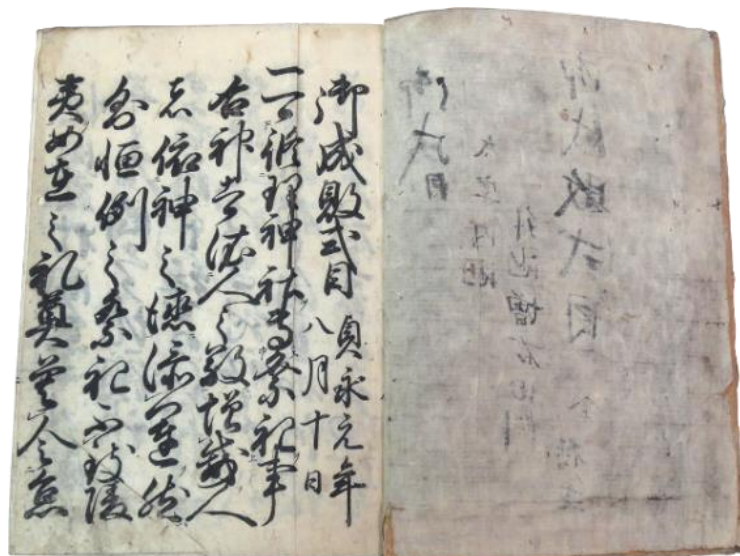 御成敗式目
御式目
御成敗式目 貞永元年
八月十日
一可修理神社専祭祀事
右神者依人之敬増威人
者依神之徳添運然
則恒例之祭祀不致陵
夷如在之礼奠莫令怠